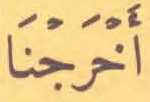 أَخْرَجْنَا